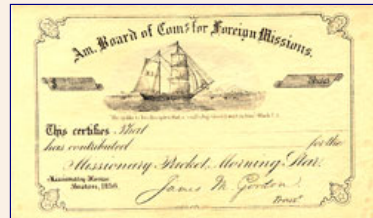 Am. Board of Coms for Foreign Missions.
This certifies That
has contributed for the
Missionary Packet, Morning Star.
Missionary House
Boston, 1856.
James M. Gordon
Treasr